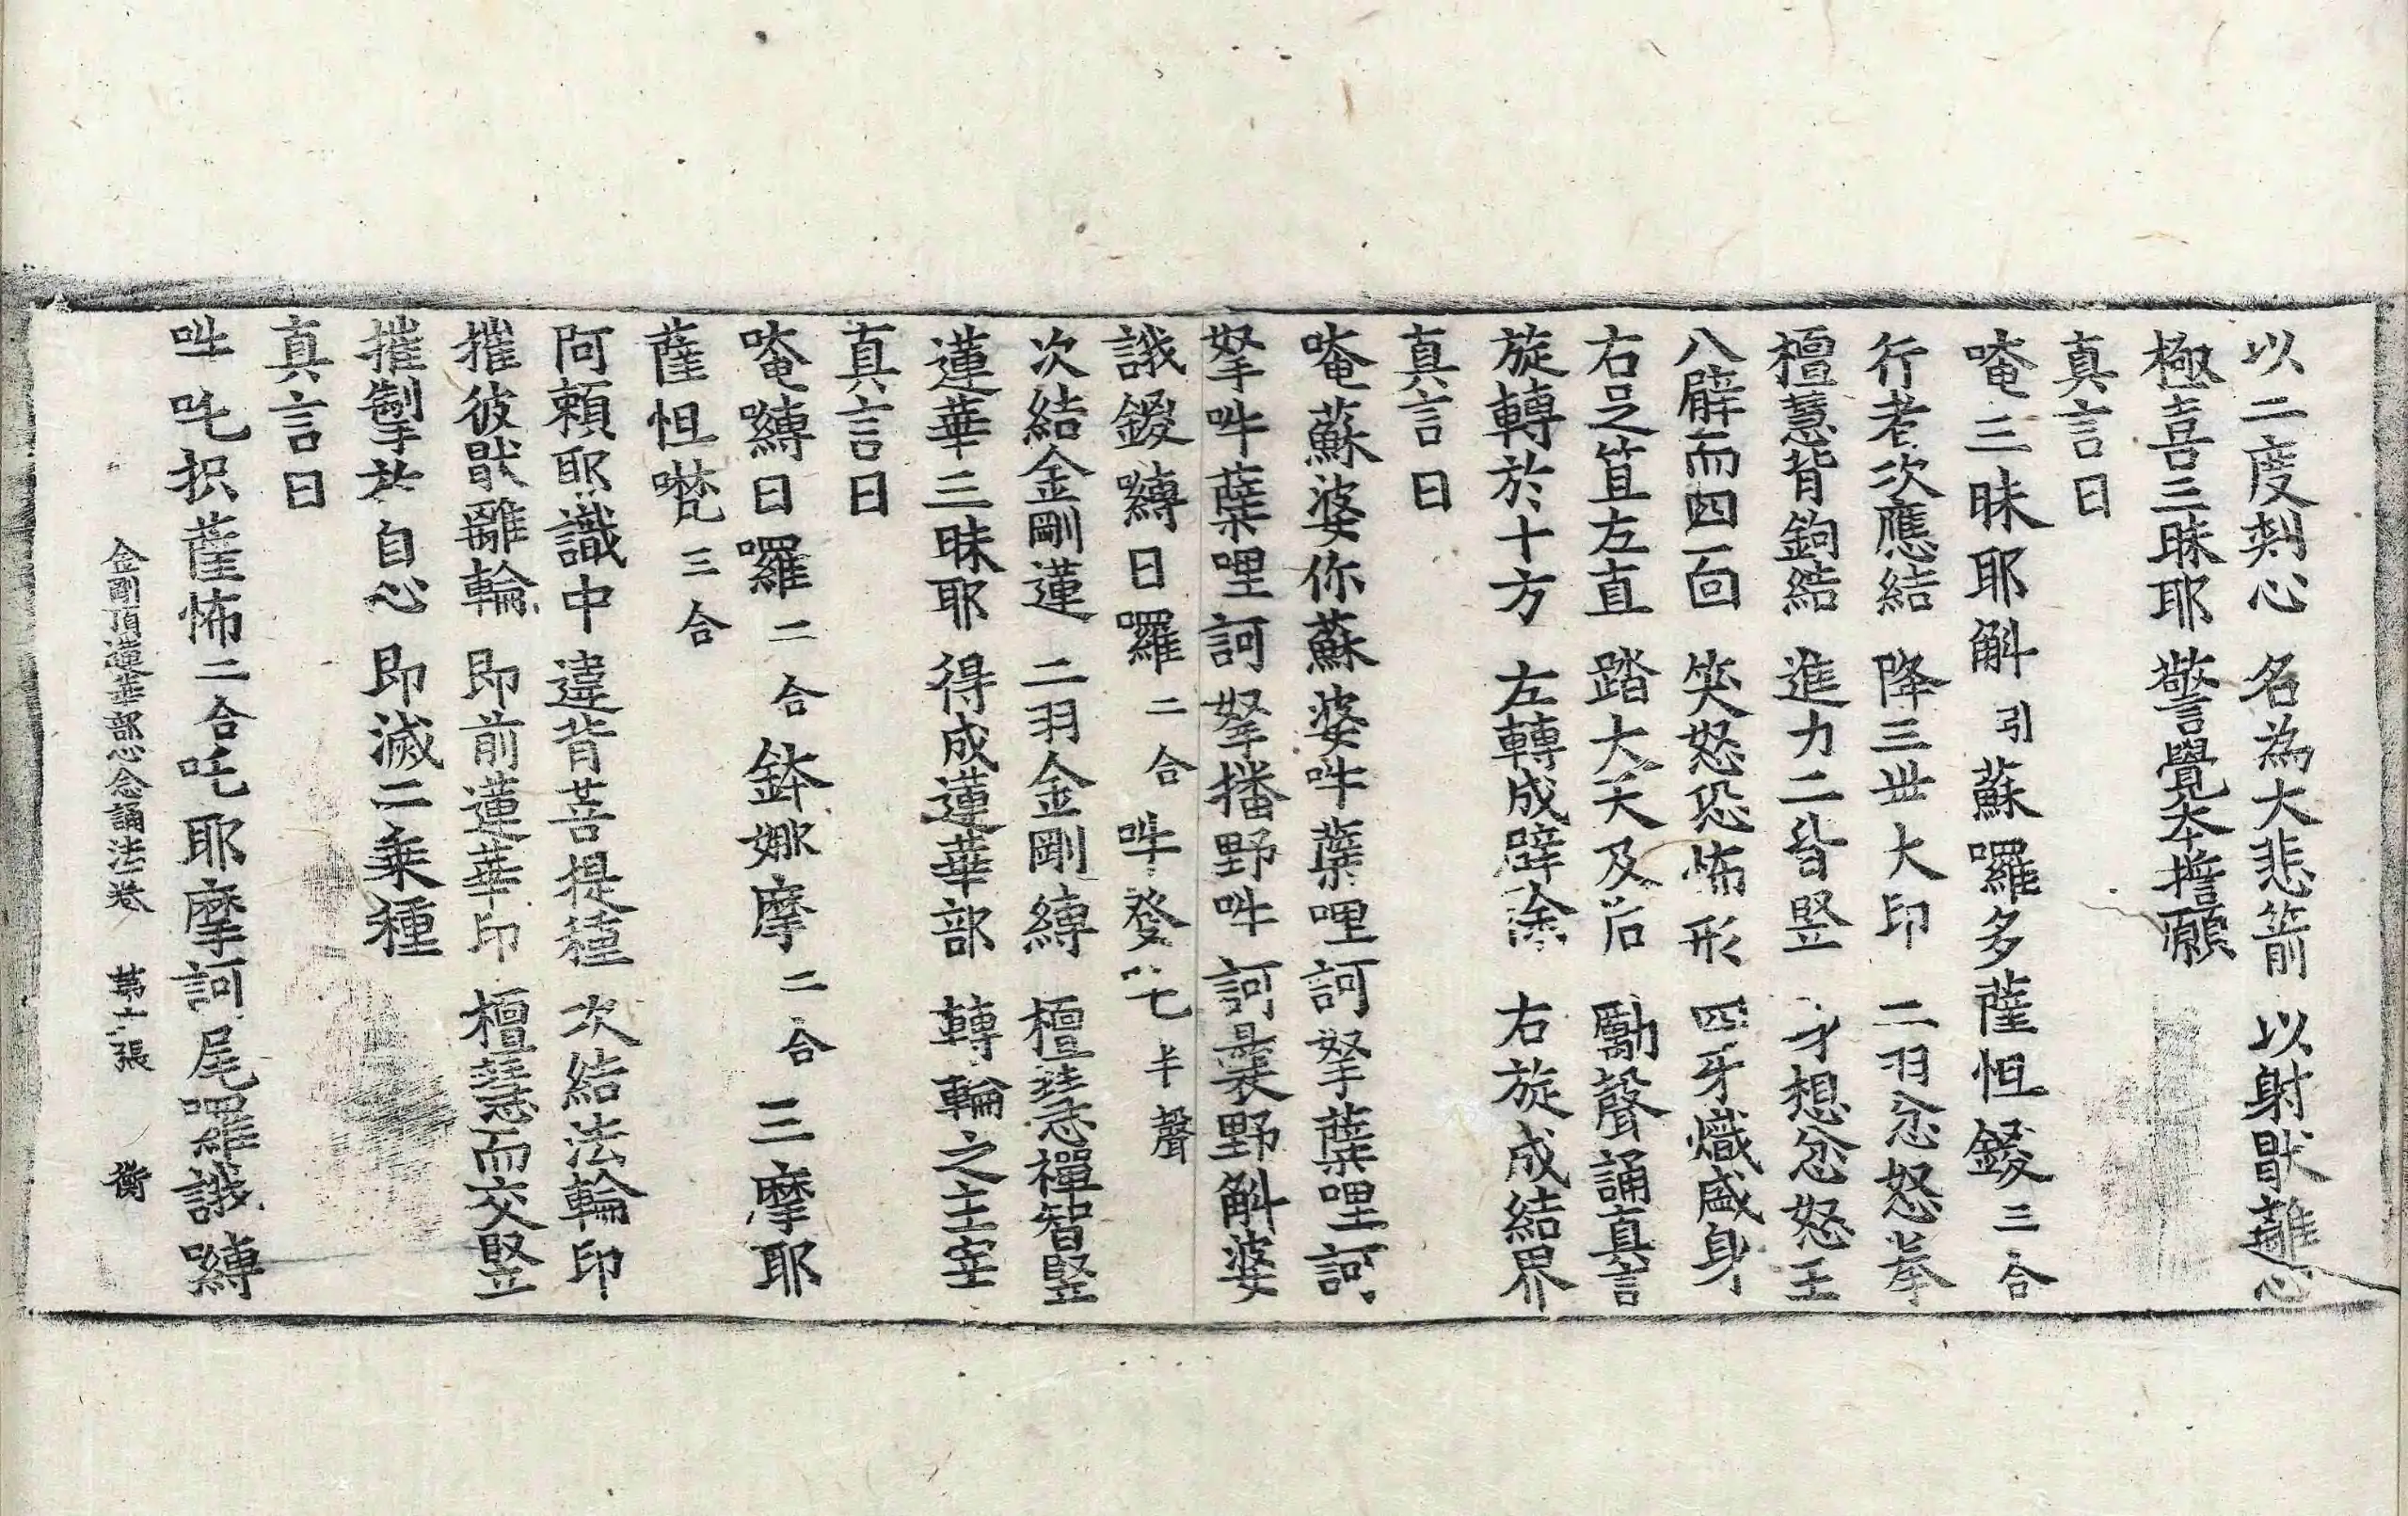 以二度刾心　名為大悲箭　以射猒離心
極喜三昧耶　警覺本擔願
真言曰
唵三昧耶斛引蘇囉多薩怛鑁三合
行者次應結　降三丗大印　二羽忿怒拳
檀慧背鉤結　進力二皆竪　身想忿怒王
八臂而四面　笑怒恐怖形　四牙熾盛身
右足笡左直　踏大天及后　勵聲誦真言
旋轉於十方　左轉成辟除　右旋成結界
真言曰
唵蘇婆你蘇婆吽蘖哩訶拏蘖哩訶
拏吽蘖哩訶拏播野吽訶曩野斛婆
誐鑁嚩日囉二合吽發吒半聲
次結金剛蓮　二羽金剛縛　檀慧禪智竪
蓮華三昧耶　得成蓮華部　轉輪之主宰
真言曰
唵嚩日囉二合鉢娜摩二合三摩耶
薩怛鑁三合
阿頼耶識中　違背菩提種　次結法輪印
摧彼猒離輪　即前蓮華印　檀慧而交竪
摧掣於自心　即滅二乗種
真言曰
吽吒枳薩怖二合吒耶摩訶尾囉誐嚩
金剛頂蓮華部心念誦法卷　苐十張　衡